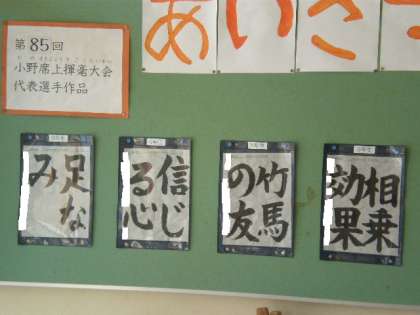 第85回
小野席上揮毫大会
代表選手作品
あいさつ
足な
み
信じ
る心
竹馬
の友
相乗
効果